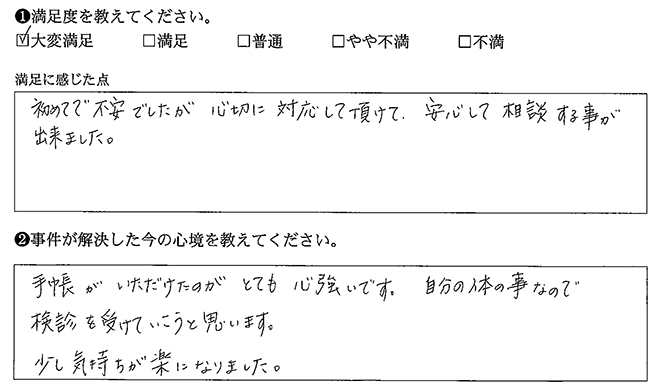 ❶満足度を教えてください。
☑大変満足 □満足 □普通 □やや不満 □不満
満足に感じた点
初めてで不安でしたが 心切に 対応して頂けて、安心して 相談 する事が
出来ました。
❷事件が解決した今の心境を教えてください。
手帳が いただけたのが とても 心強いです。 自分の体の事なので
検診を受けていこうと思います。
少し気持ちが楽になりました。